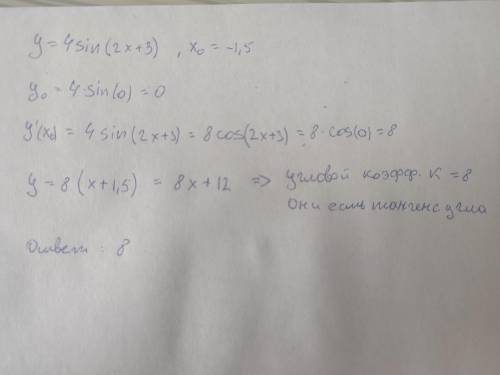 y = 4 sin(2x+3) , x₀ = -1,5
y₀ = 4·sin(0) = 0
y'(x₀) = 4 sin(2x+3) = 8 cos(2x+3) = 8 · cos(0) = 8
y = 8 (x+1,5) = 8x+12 => угловой коэфф. k = 8
Они есть тангенс угла
Ответ : 8